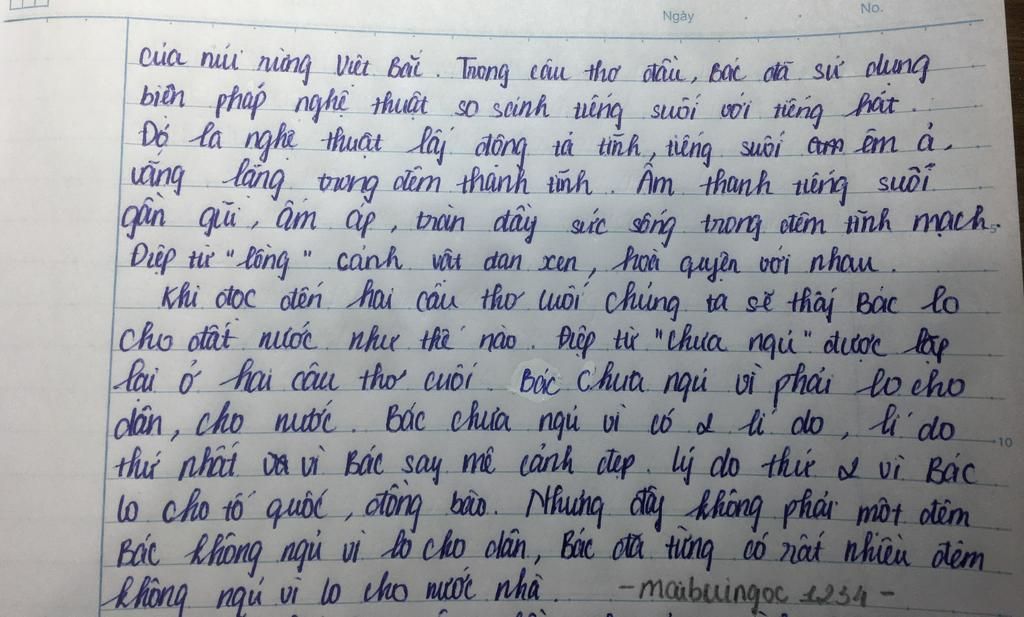 Ngày . . No.
của núi rừng Việt Bắc. Trong câu thơ đầu, Bác đã sử dụng
biện pháp nghệ thuật so sánh tiếng suối với tiếng hát.
Đó là nghệ thuật lấy động tả tĩnh, tiếng suối êm ả,
vắng lặng trong đêm thanh tĩnh. Âm thanh tiếng suối
gần gũi, ấm áp, tràn đầy sức sống trong đêm tĩnh mạch.
Điệp từ "lồng" cảnh vật đan xen, hoà quyện với nhau.
Khi đọc đến hai câu thơ cuối chúng ta sẽ thấy Bác lo
cho đất nước như thế nào. Điệp từ "chưa ngủ" được lặp
lại ở hai câu thơ cuối. Bác Chưa ngủ vì phải lo cho
dân, cho nước. Bác chưa ngủ vì có 2 lí do, lí do
thứ nhất vì Bác say mê cảnh đẹp. lý do thứ 2 vì Bác
lo cho tổ quốc, đồng bào. Nhưng đây không phải một đêm
Bác không ngủ vì lo cho dân, Bác đã từng có rất nhiều đêm
không ngủ vì lo cho nước nhà. -maibuingoc 1234-
5
10